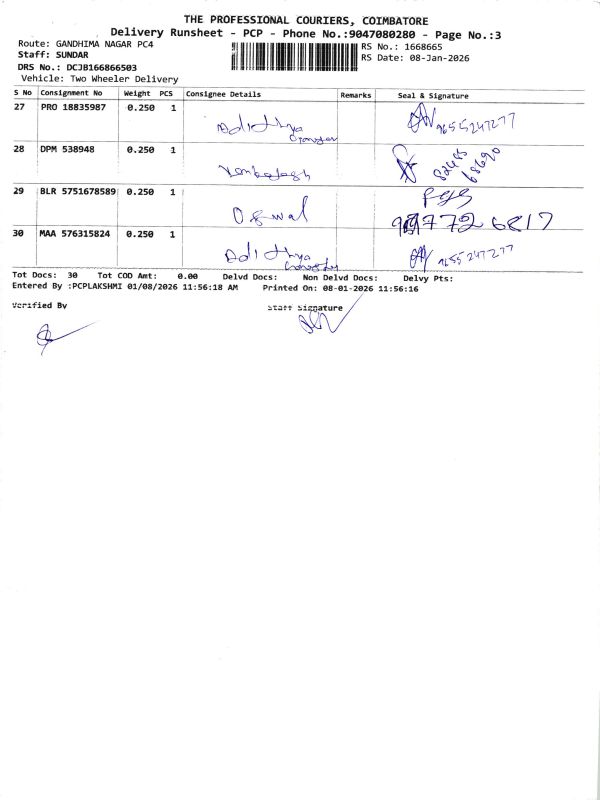 THE PROFESSIONAL COURIERS, COIMBATORE
Delivery Runsheet - PCP - Phone No.:9047080280 - Page No.:3
Route: GANDHIMA NAGAR PC4
Staff: SUNDAR
DRS No.: DCJB166866503
Vehicle: Two Wheeler Delivery
RS No.: 1668665
RS Date: 08-Jan-2026
S No Consignment No Weight PCS Consignee Details Remarks Seal & Signature
27 PRO 18835987 0.250 1 Adithya 9655247277
28 DPM 538948 0.250 1 82485 68690
29 BLR 5751678589 0.250 1
30 MAA 576315824 0.250 1 Adithya 9655247277
Tot Docs: 30 Tot COD Amt: 0.00 Delvd Docs: Non Delvd Docs: Delvy Pts:
Entered By :PCPLAKSHMI 01/08/2026 11:56:18 AM Printed On: 08-01-2026 11:56:16
Verified By Staff Signature